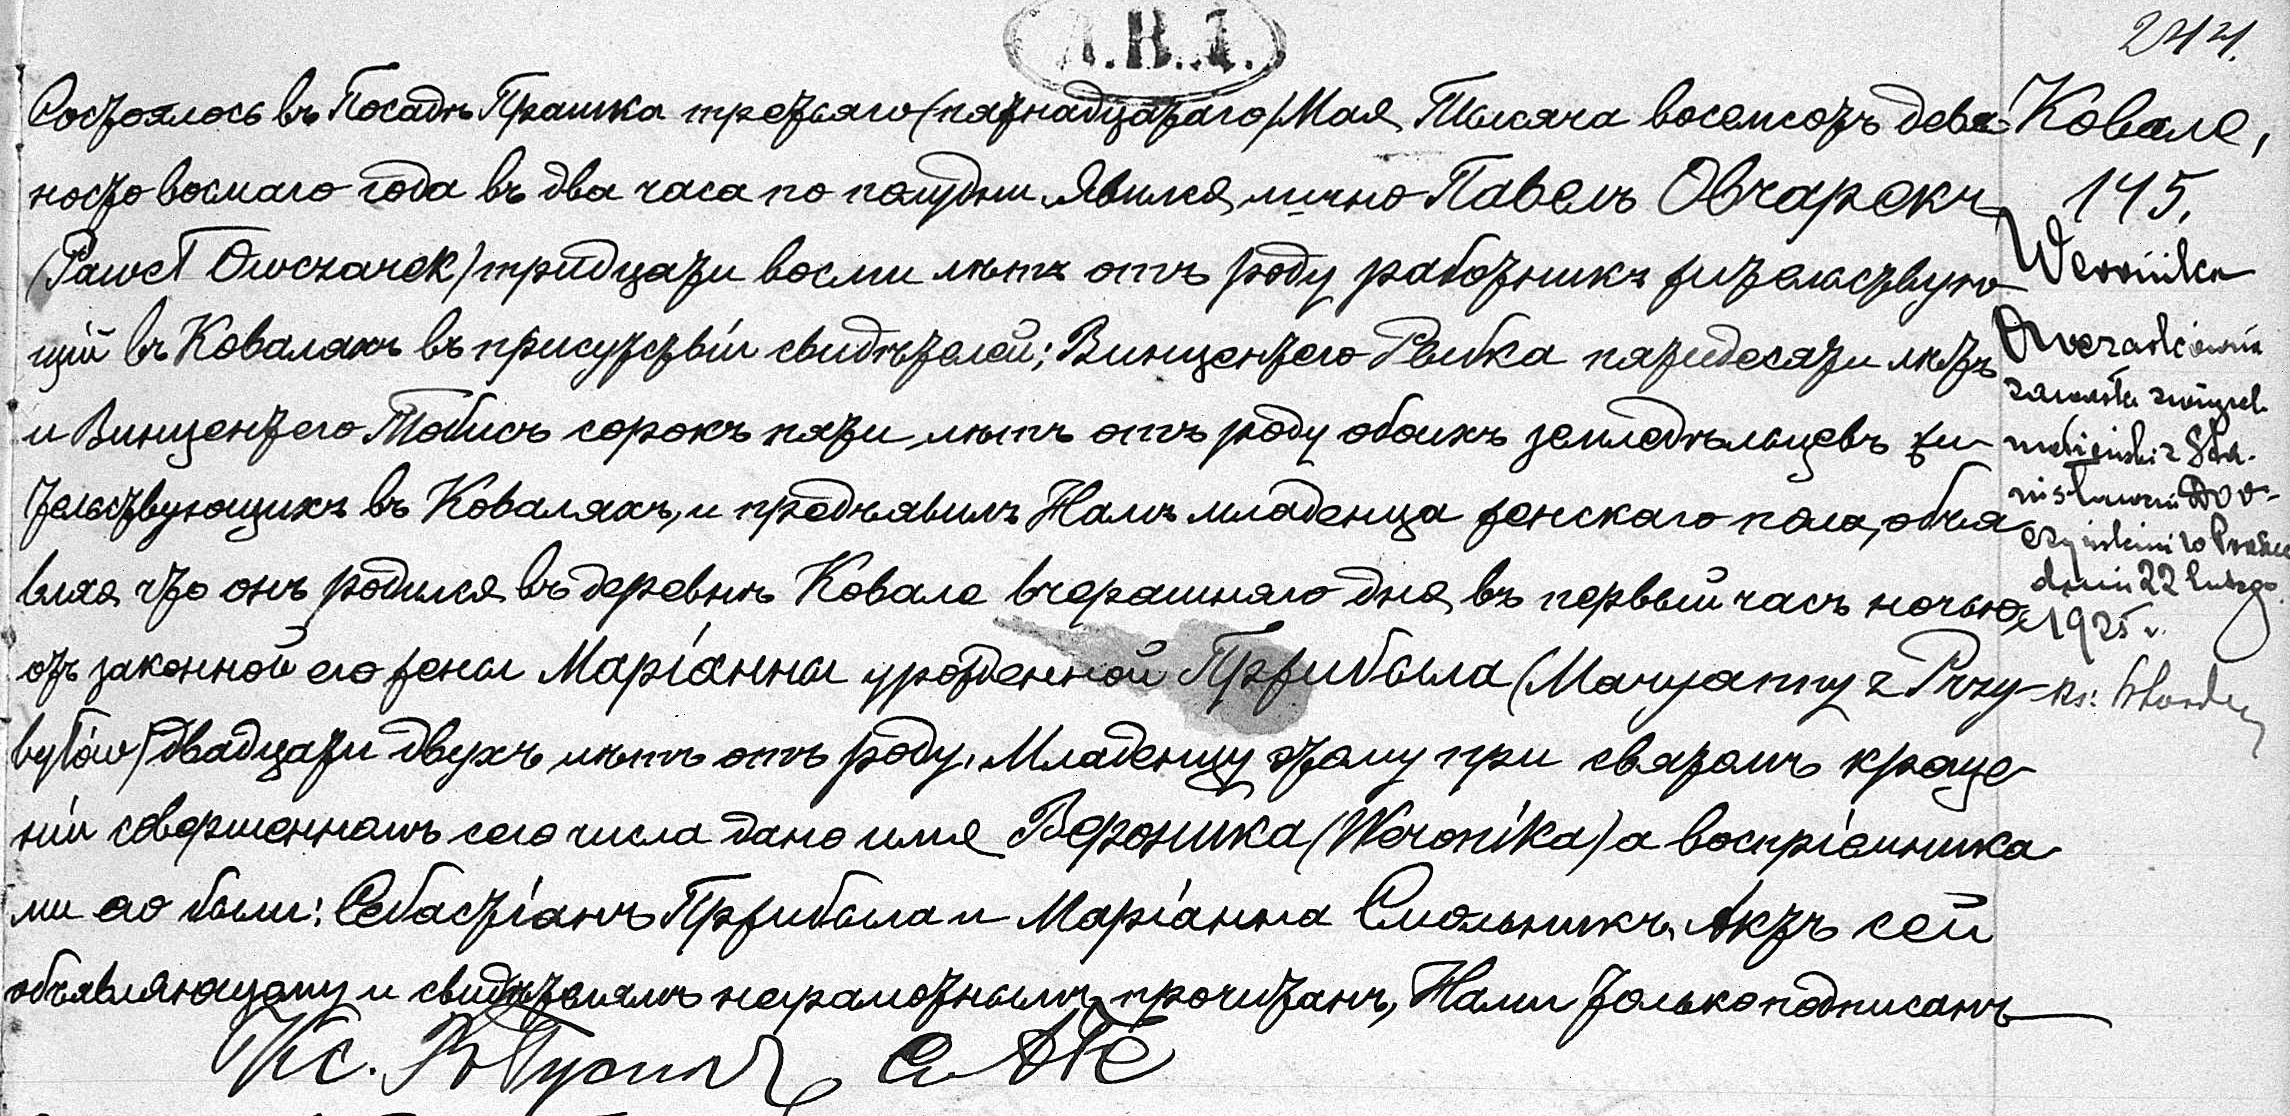 А.В.І.
244.
Состоялось въ Посадѣ Прашка третьяго (пятнадцатаго) Мая, Тысяча восемсотъ девя
носто восмаго года въ два часа по полудни. Явился лично Павелъ Овчарекъ
(Paweł Owczarek) тридцати восми лѣтъ отъ роду работникъ жительствую
щій въ Коваляхъ въ присутствіи свидѣтелей; Винцентего Рыбка пятидесяти лѣтъ
и Винцентего Тобисъ сорокъ пяти лѣтъ отъ роду обоихъ земледѣльцевъ жи
тельствующихъ въ Коваляхъ, и предъявилъ Намъ младенца женскаго пола, объя
вляя что онъ родился въ деревнѣ Ковале вчерашняго дня въ первый часъ ночью
отъ законной его жены Маріанны урожденной Пржибыла (Maryanny z Przy
byłów) двадцати двухъ лѣтъ отъ роду. Младенцу этому при святомъ креще
ніи совершенномъ сего числа дано имя Вероника (Weronika) а воспріемника
ми его были: Себастіанъ Пржибыла и Маріанна Смольникъ. Актъ сей
объявляющему и свидѣтелямъ неграмотнымъ прочитанъ, Нами только подписанъ
Кс.
Ковале,
145.
Weronika
Owczarkówna
zawarła związek
małżeński z Sta-
nisławem
w Praszce
dnia 22 lutego
1925 r.
ks.